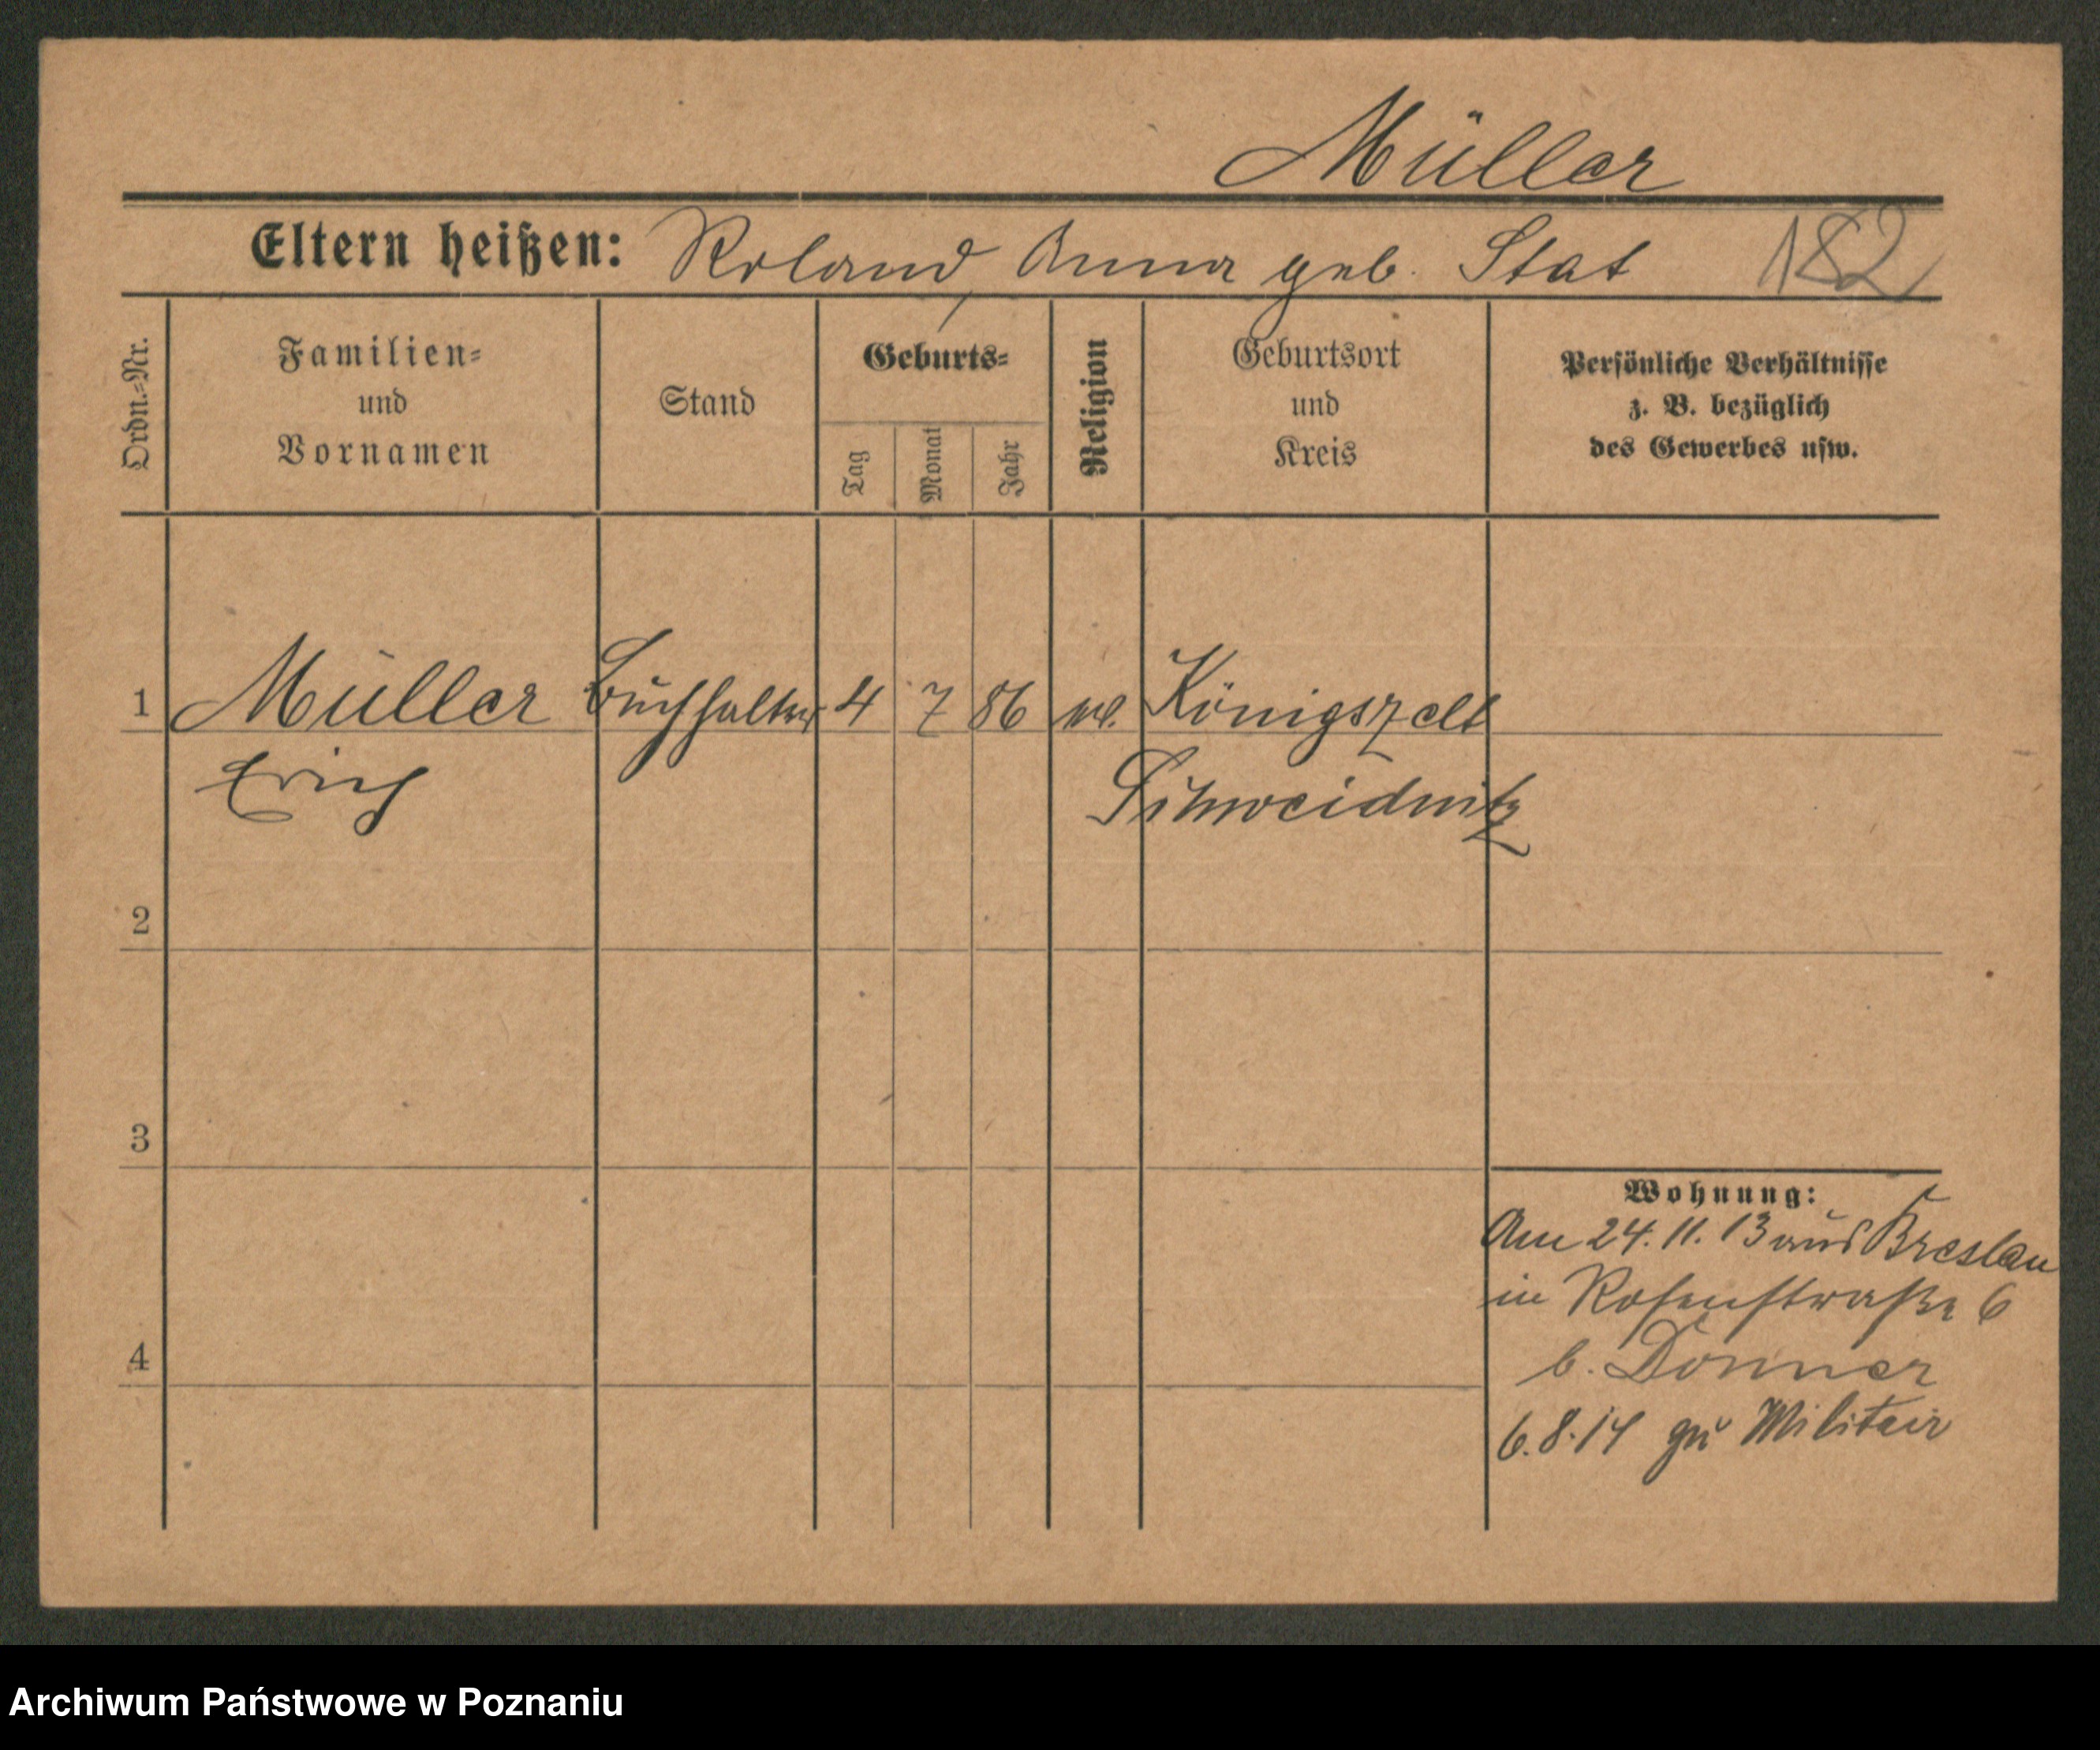 Müller
Eltern heißen: Roland, Anna geb. Stat 182
Ordn.=Nr.
Familien=
und
Vornamen
Stand
Geburts=
Tag
Monat
Jahr
Religion
Geburtsort
und
Kreis
Persönliche Verhältnisse
z. B. bezüglich
des Gewerbes usw.
1 Müller Buchhalter 4 7 86 Königszelt
Erich Schweidnitz
2
3
Wohnung:
Am 24. 11. 13 aus Breslau
in Rosenstraße 6
4
b. Donner
6. 8. 14 zu Militair
Archiwum Państwowe w Poznaniu